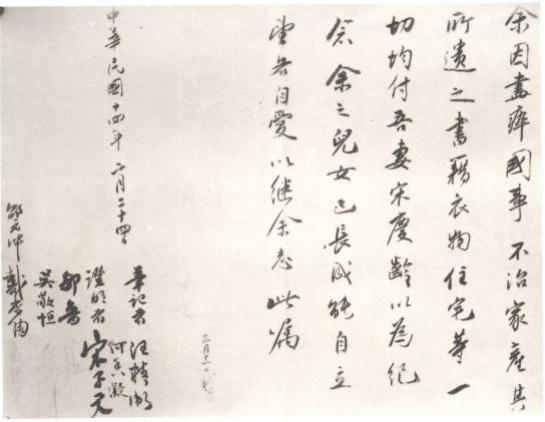 余因盡瘁國事不治家產其
所遺之書籍衣物住宅等一
切均付吾妻宋慶齡以為紀
念余之兒女已長成能自立
望各自愛以繼余志此囑
中華民國十四年二月二十四日
筆記者 汪精衛
何香凝
證明者 宋子文
鄒魯
吳敬恒
邵元冲
戴季陶